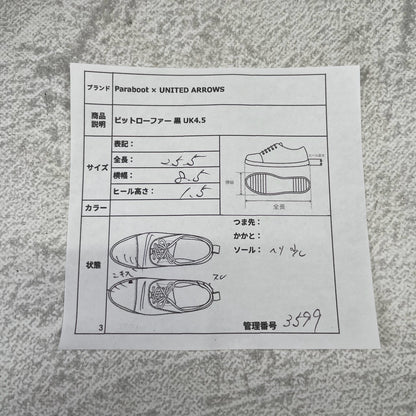 ブランド Paraboot × UNITED ARROWS
商品説明 ビットローファー 黒 UK4.5
サイズ
表記：
全長： 25.5
横幅： 8.5
ヒール高さ： 1.5
全長
カラー
状態
つま先：
かかと：
ソール： ヘリ
スレ
3
管理番号 3599